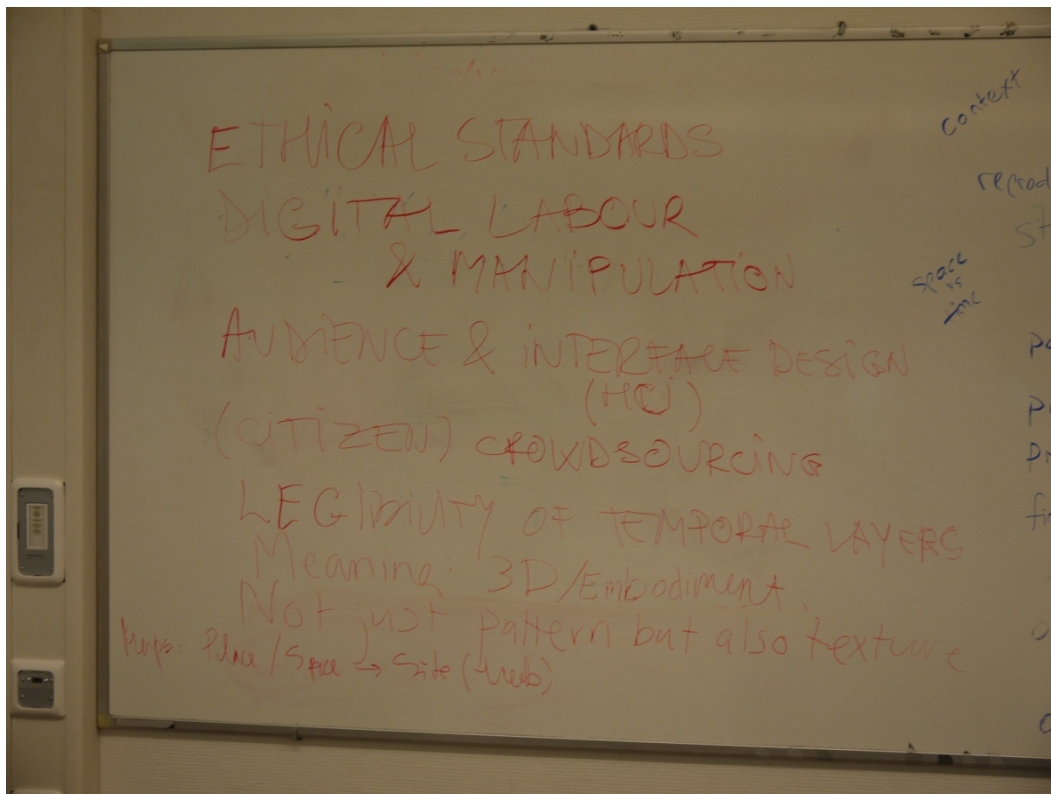 ETHICAL STANDARDS
DIGITAL LABOUR
& MANIPULATION
AUDIENCE & INTERFACE DESIGN
(HCI)
(CITIZEN) CROWDSOURCING
LEGIBILITY OF TEMPORAL LAYERS
Meaning: 3D/Embodiment
Not just pattern but also texture
Maps: Place/Space → Site (-web)
context
reprod
st
space
vs